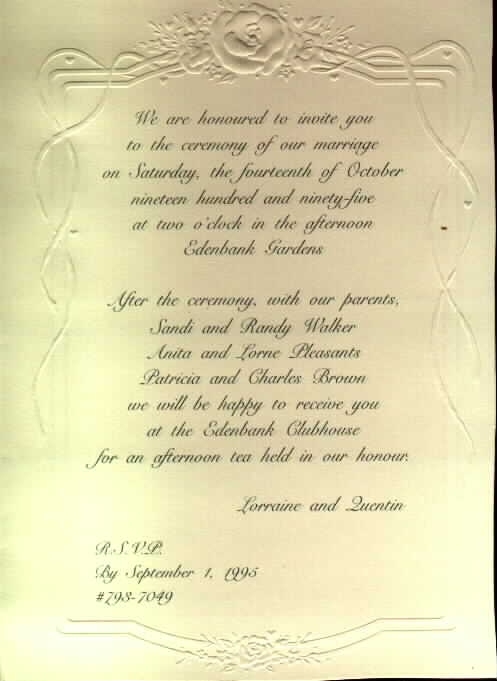 We are honoured to invite you
to the ceremony of our marriage
on Saturday, the fourteenth of October
nineteen hundred and ninety-five
at two o'clock in the afternoon
Edenbank Gardens
After the ceremony, with our parents,
Sandi and Randy Walker
Anita and Lorne Pleasants
Patricia and Charles Brown
we will be happy to receive you
at the Edenbank Clubhouse
for an afternoon tea held in our honour.
Lorraine and Quentin
R.S.V.P.
By September 1, 1995
#793-7049